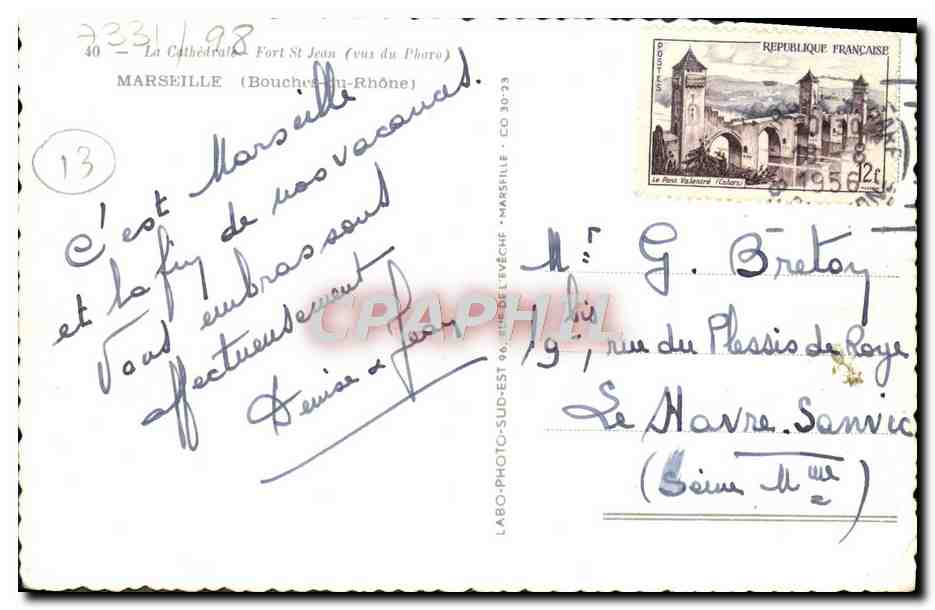 7331/98
40 — La Cathédrale - Fort St Jean (vus du Pharo)
MARSEILLE (Bouches-du-Rhône)
13
C'est Marseille
et la fin de nos vacances.
Vous embrassons
affectueusement
Denise & Jean
LABO-PHOTO-SUD-EST 96, RUE DE L'EVÊCHÉ - MARSEILLE - CO 30-23
POSTES
REPUBLIQUE FRANÇAISE
Le Pont Valentré (Cahors)
12f
1956
Mr G. Bretoy
19 bis, rue du Plessis de Roye
Le Havre-Sanvic
(Seine Mme)
CPAPHIL